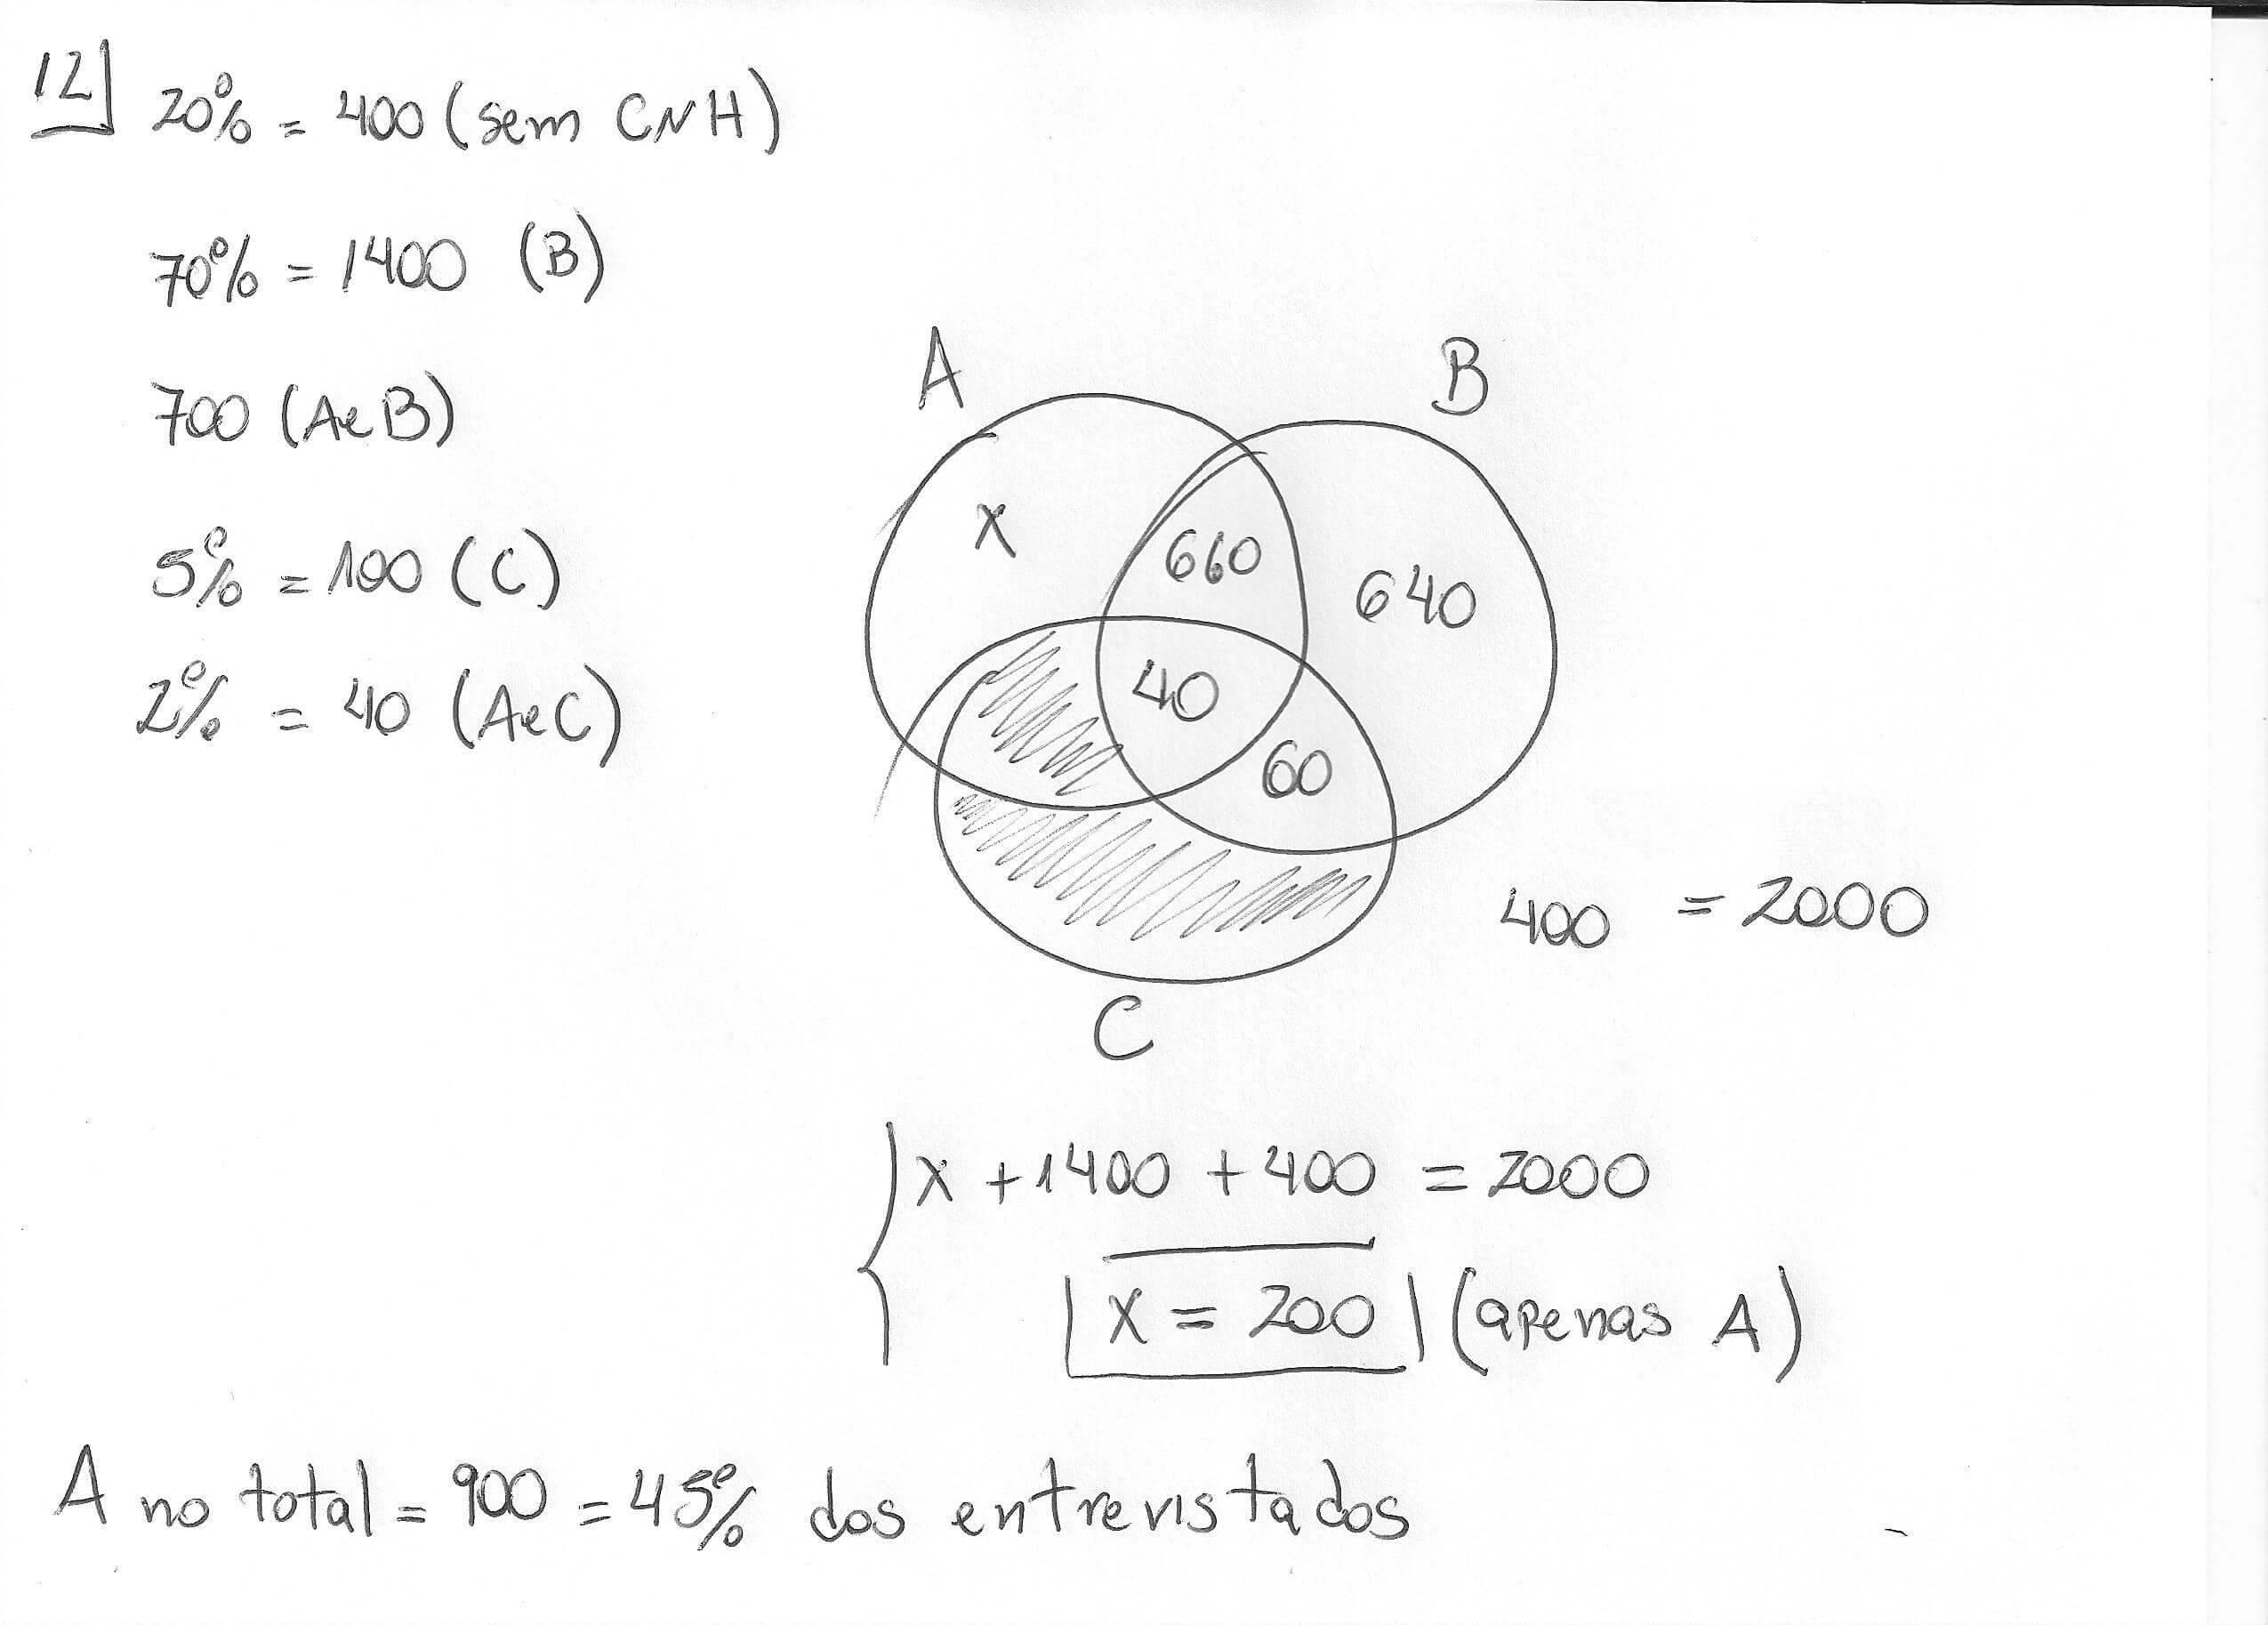 12
20% = 400 (sem CNH)
70% = 1400 (B)
700 (A e B)
5% = 100 (C)
2% = 40 (A e C)
A
B
x
660
640
40
60
400 = 2000
C
x + 1400 + 400 = 2000
x = 200 (apenas A)
A no total = 900 = 45% dos entrevistados